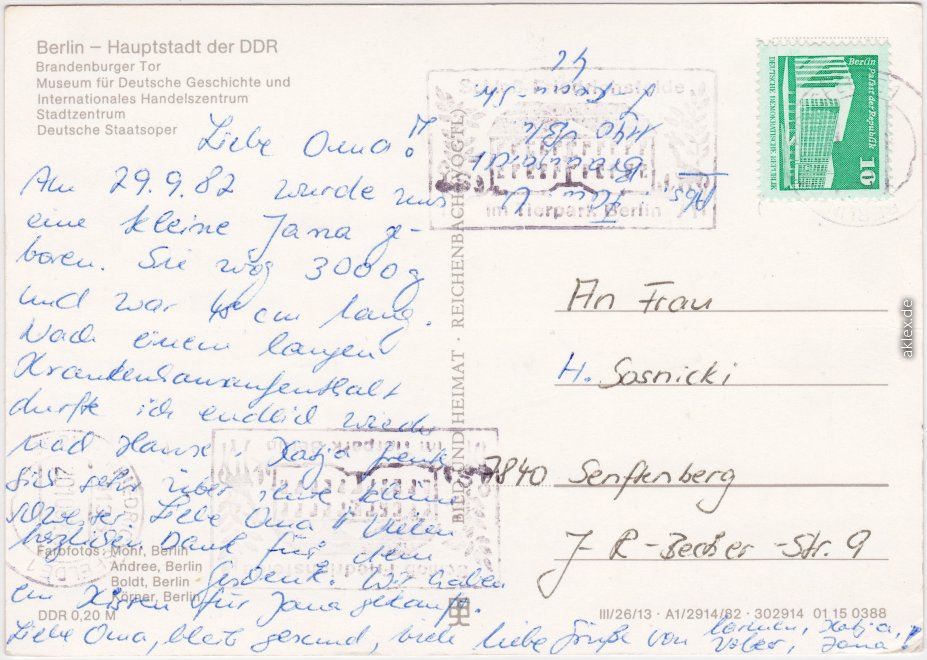 Berlin – Hauptstadt der DDR
Brandenburger Tor
Museum für Deutsche Geschichte und
Internationales Handelszentrum
Stadtzentrum
Deutsche Staatsoper
Liebe Oma!
Am 29.9.82 wurde uns
eine kleine Jana ge-
boren. Sie wog 3000g
und war 48 cm lang.
Nach einem langen
Krankenhausaufenthalt
durfte ich endlich wieder
nach Hause. Katja freut
sich sehr über ihre kleine
Schwester. Liebe Oma vielen
herzlichen Dank für dein
Geschenk. Wir haben
ein Kissen für Jana gekauft.
Liebe Oma, bleib gesund, viele liebe Grüße von Carmen, Katja,
Volker, Jana!
Farbfotos: Mohr, Berlin
Andree, Berlin
Boldt, Berlin
Körner, Berlin
DDR 0,20 M
BILD UND HEIMAT · REICHENBACH (VOGTL)
Abs.
1140 Bln
im Tierpark Berlin
Berlin
Palast der Republik
DEUTSCHE DEMOKRATISCHE REPUBLIK
10
An Frau
H. Sosnicki
7840 Senftenberg
J-R-Becher-Str. 9
III/26/13 · A1/2914/82 · 302914 01 15 0388
aklex.de